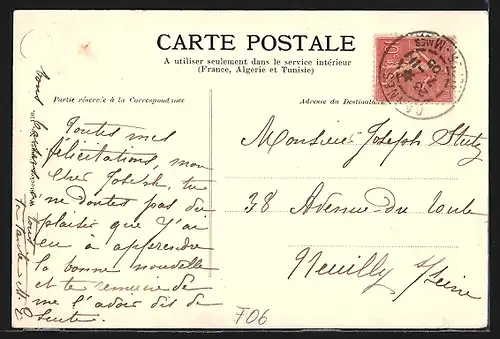 CARTE POSTALE
A utiliser seulement dans le service intérieur
(France, Algérie et Tunisie)
Partie réservée à la Correspondance
Adresse du Destinataire
Toutes mes
félicitations, mon
cher Joseph, tu
ne doutes pas du
plaisir que j'ai
eu à apprendre
la bonne nouvelle
et te remercie de
me l'avoir dit de
suite.
Monsieur Joseph
38 Avenue du
Neuilly s/Seine
F06